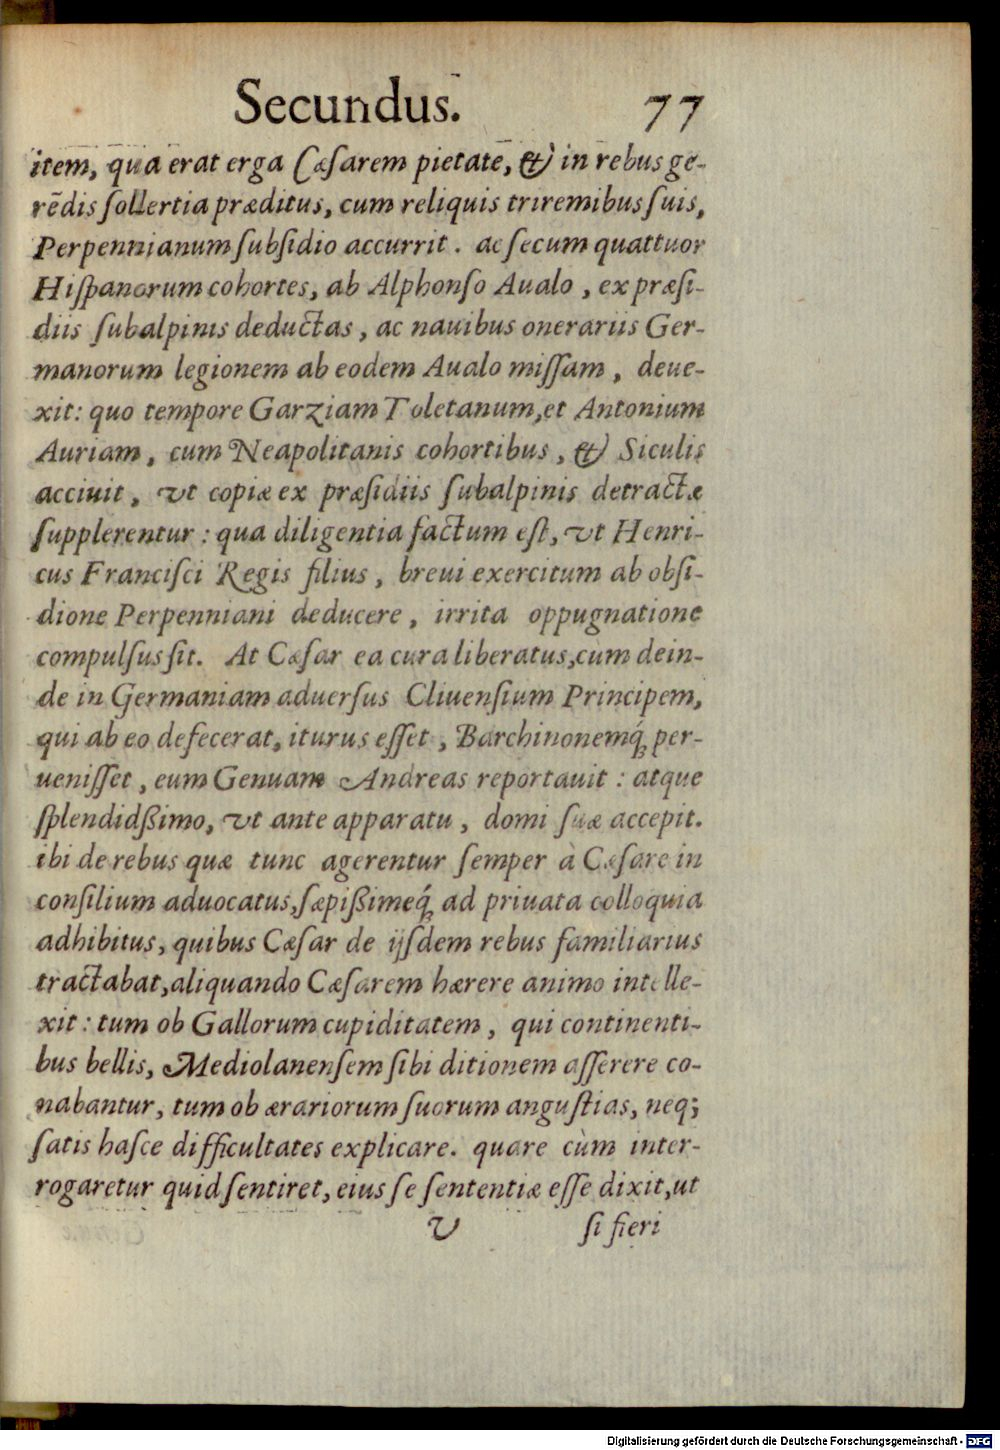 Secundus. 77
item, qua erat erga Cæſarem pietate, & in rebus ge-
rẽdis ſollertia præditus, cum reliquis triremibus ſuis,
Perpennianum ſubſidio accurrit. ac ſecum quattuor
Hiſpanorum cohortes, ab Alphonſo Aualo, ex præſi-
diis ſubalpinis deductas, ac nauibus onerariis Ger-
manorum legionem ab eodem Aualo miſſam, deue-
xit: quo tempore Garziam Toletanum, et Antonium
Auriam, cum Neapolitanis cohortibus, & Siculis
acciuit, vt copiæ ex præſidiis ſubalpinis detractæ
ſupplerentur: qua diligentia factum eſt, vt Henri-
cus Franciſci Regis filius, breui exercitum ab obſi-
dione Perpenniani deducere, irrita oppugnatione
compulſus ſit. At Cæſar ea cura liberatus, cum dein-
de in Germaniam aduerſus Cliuenſium Principem,
qui ab eo defecerat, iturus eſſet, Barchinonemq́; per-
ueniſſet, eum Genuam Andreas reportauit: atque
ſplendidßimo, vt ante apparatu, domi ſuæ accepit.
ibi de rebus quæ tunc agerentur ſemper à Cæſare in
conſilium aduocatus, ſæpißimeq́; ad priuata colloquia
adhibitus, quibus Cæſar de ijſdem rebus familiarius
tractabat, aliquando Cæſarem hærere animo intelle-
xit: tum ob Gallorum cupiditatem, qui continenti-
bus bellis, Mediolanenſem ſibi ditionem aſſerere co-
nabantur, tum ob ærariorum ſuorum anguſtias, neq;
ſatis haſce difficultates explicare. quare cùm inter-
rogaretur quid ſentiret, eius ſe ſententiæ eſſe dixit, ut
V ſi fieri
Digitalisierung gefördert durch die Deutsche Forschungsgemeinschaft - DFG